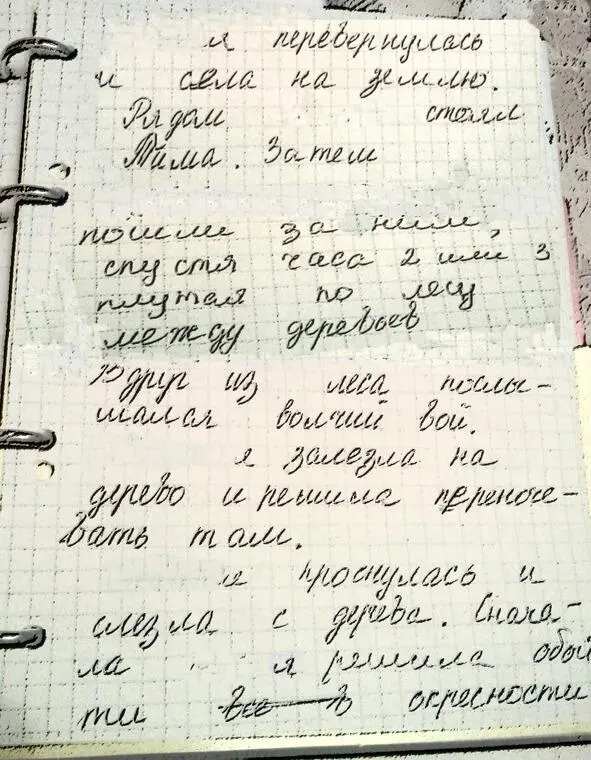 я перевернулась
и села на землю.
Рядом стоял
Тима. Затем
пошли за ним,
спустя часа 2 или 3
плутая по лесу
между деревьев
Вдруг из леса послы-
шался волчий вой.
я залезла на
дерево и решила переноче-
вать там.
я проснулась и
слезла с дерева. Снача-
ла я решила обой
ти все в окресности